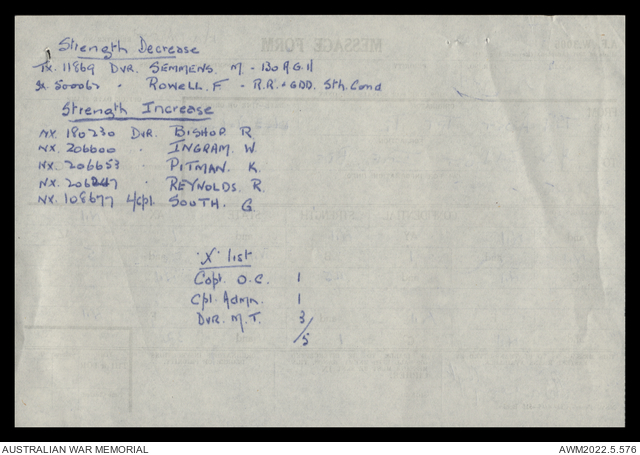 Strength Decrease
TX. 11869 DVR. SEMMENS. M - 130 A.G.H
SX 500062 - ROWELL. F - R.R. & GDD. Sth. Cond
Strength Increase
NX. 190230 DVR. BISHOP R.
NX. 206600 " INGRAM. W.
NX. 206653 " PITMAN. K.
NX. 206247 " REYNOLDS. R.
NX. 108677 L/Cpl. SOUTH. G
MESSAGE FORM
"X" list
Capt. O.C. 1
Cpl. Admn. 1
Dvr. M.T. 3
/5
AUSTRALIAN WAR MEMORIAL
AWM2022.5.576